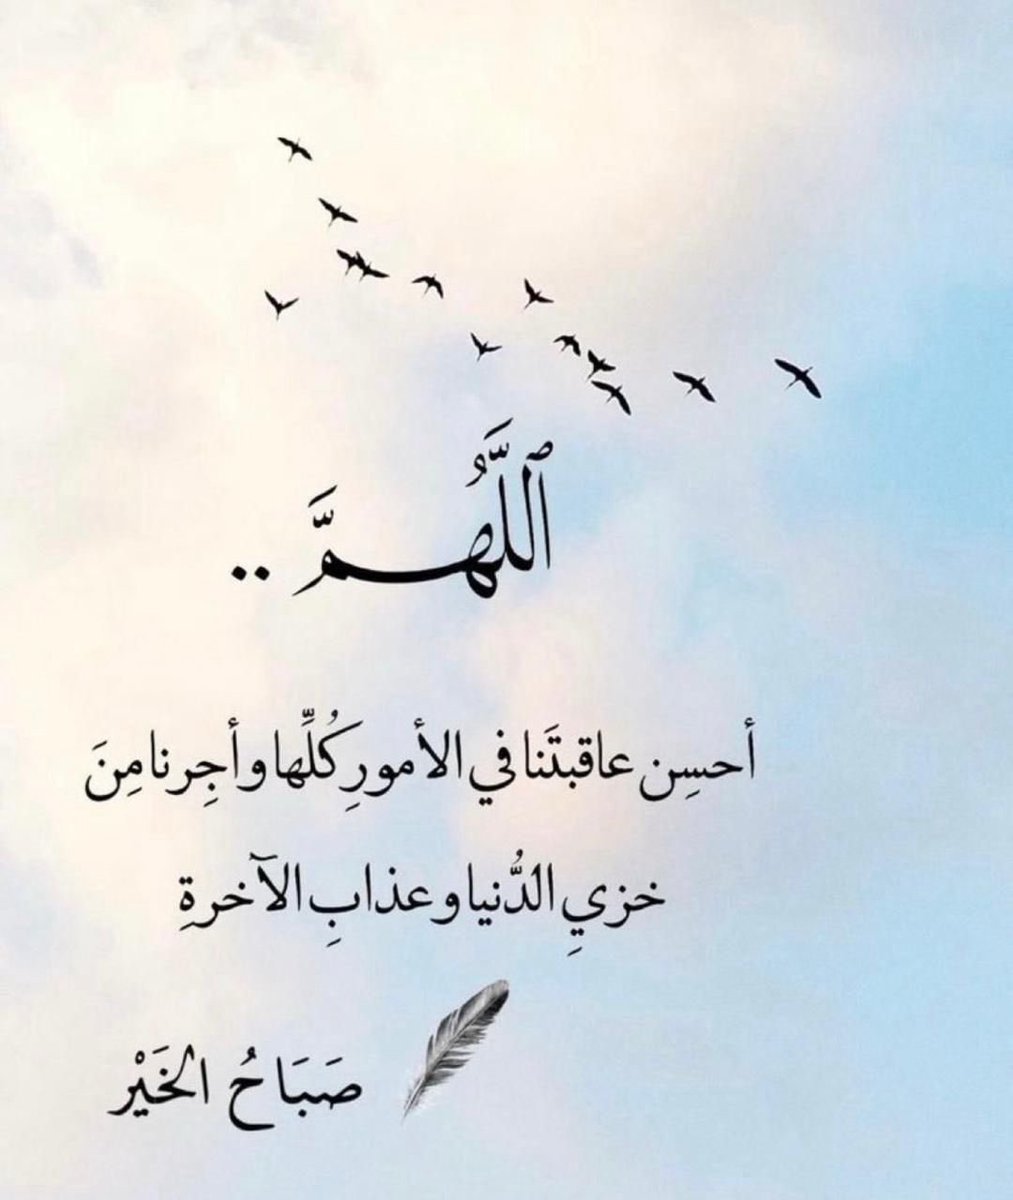 اللَّهُمَّ ..
أحسِن عاقبتَنا في الأمورِ كُلِّها وأجِرنا مِنَ
خزيِ الدُّنيا وعذابِ الآخرةِ
صَبَاحُ الخَيْر